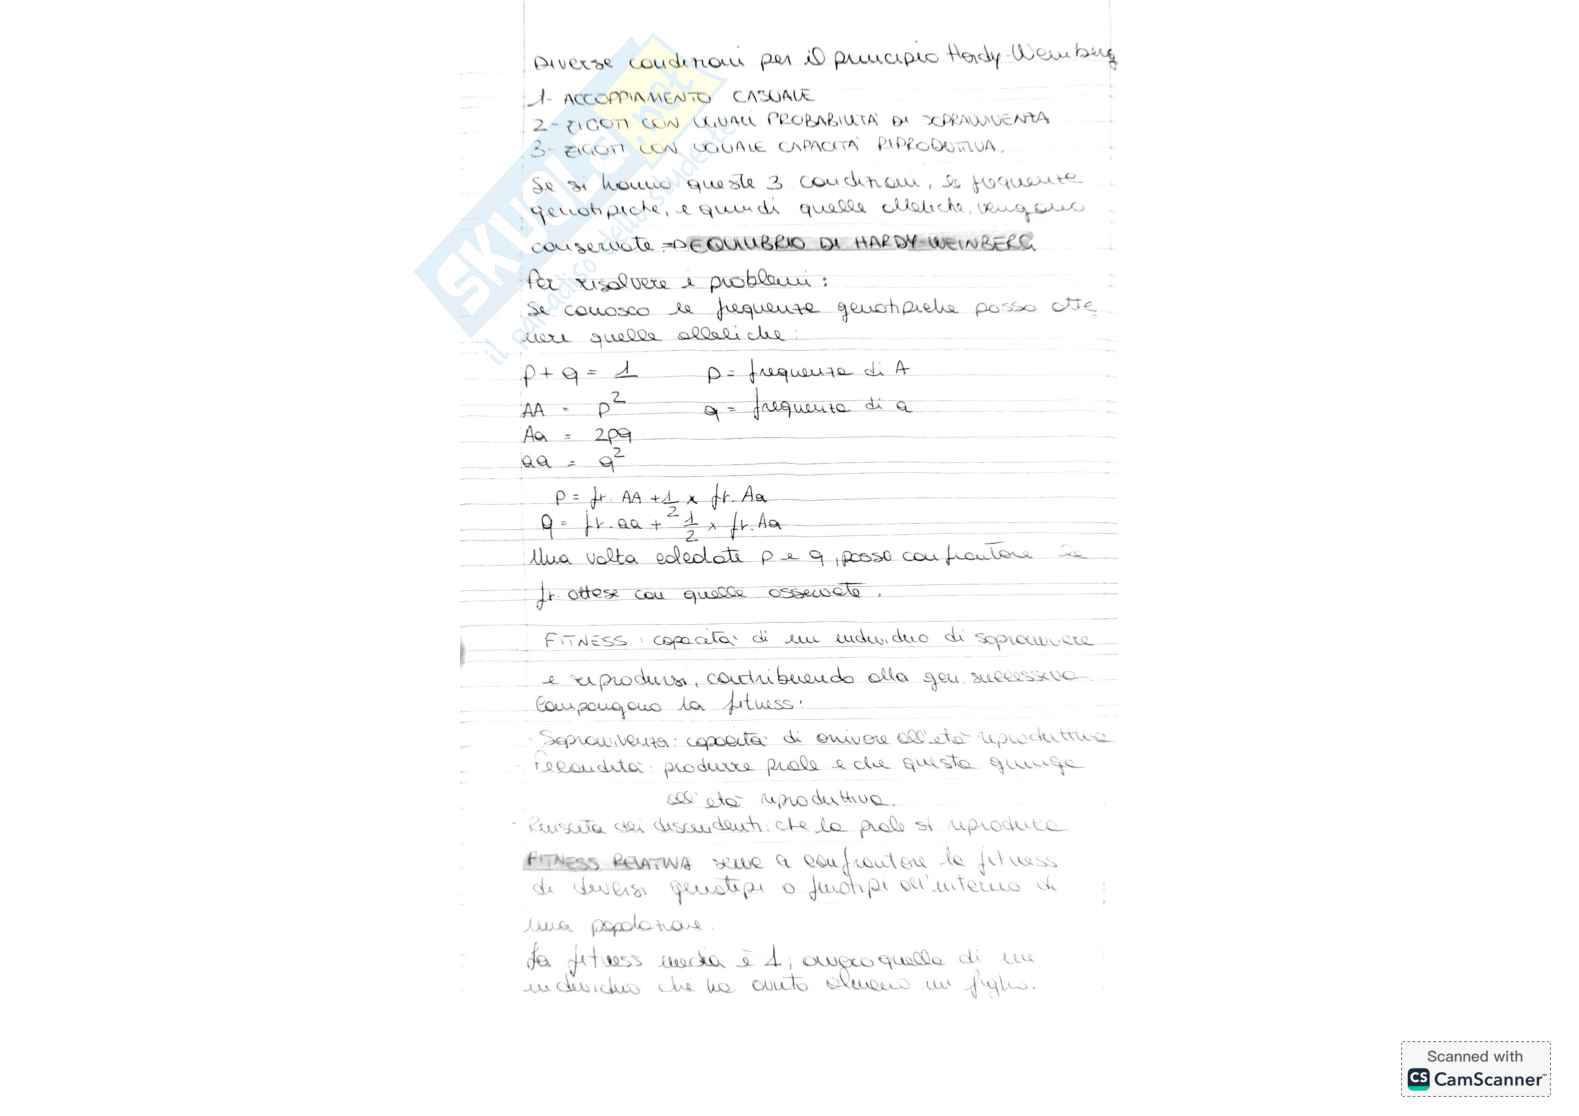 Diverse condizioni per il principio Hardy-Weinberg
1- ACCOPPIAMENTO CASUALE
2- ZIGOTI CON UGUALI PROBABILITÀ DI SOPRAVVIVENZA
3- ZIGOTI CON UGUALE CAPACITÀ RIPRODUTTIVA.
Se si hanno queste 3 condizioni, le frequenze
genotipiche, e quindi quelle alleliche, vengono
conservate => EQUILIBRIO DI HARDY-WEINBERG
Per risolvere i problemi:
Se conosco le frequenze genotipiche posso otte
nere quelle alleliche:
p + q = 1 p = frequenza di A
AA = p² q = frequenza di a
Aa = 2pq
aa = q²
p = fr. AA + 1/2 x fr. Aa
q = fr. aa + 1/2 x fr. Aa
Una volta p e q, posso confrontare le
fr. attese con quelle osservate.
FITNESS: capacità di un individuo di sopravvivere
e riprodursi, contribuendo alla gen. successiva
Compongono la fitness:
- Sopravvivenza: capacità di arrivare all'età riproduttiva
- Fecondità: produrre prole e che questa giunga
all'età riproduttiva.
- Riuscita dei discendenti: che la prole si riproduca
FITNESS RELATIVA serve a confrontare la fitness
di diversi genotipi o fenotipi all'interno di
una popolazione.
La fitness media è 1, ovvero quella di un
individuo che ha avuto almeno un figlio.
SKUOLA.net
il paradiso dello studente
Scanned with
CS CamScanner